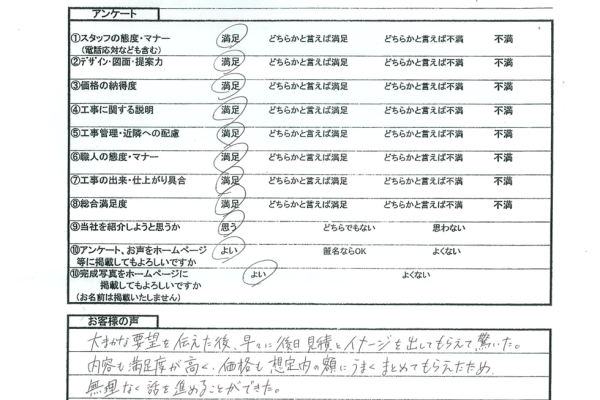 アンケート
①スタッフの態度・マナー 満足 どちらかと言えば満足 どちらかと言えば不満 不満
(電話応対なども含む)
②ﾃﾞｻﾞｲﾝ・図面・提案力 満足 どちらかと言えば満足 どちらかと言えば不満 不満
③価格の納得度 満足 どちらかと言えば満足 どちらかと言えば不満 不満
④工事に関する説明 満足 どちらかと言えば満足 どちらかと言えば不満 不満
⑤工事管理・近隣への配慮 満足 どちらかと言えば満足 どちらかと言えば不満 不満
⑥職人の態度・マナー 満足 どちらかと言えば満足 どちらかと言えば不満 不満
⑦工事の出来・仕上がり具合 満足 どちらかと言えば満足 どちらかと言えば不満 不満
⑧総合満足度 満足 どちらかと言えば満足 どちらかと言えば不満 不満
⑨当社を紹介しようと思うか 思う どちらでもない 思わない
⑩アンケート、お声をホームページ よい 匿名ならOK よくない
等に掲載してもよろしいですか
⑩完成写真をホームページに よい よくない
掲載してもよろしいですか
(お名前は掲載いたしません)
お客様の声
大まかな要望を伝えた後、早々に後日見積とイメージを出してもらえて驚いた。
内容も満足度が高く、価格も想定内の額にうまくまとめてもらえたため、
無理なく話を進めることができた。